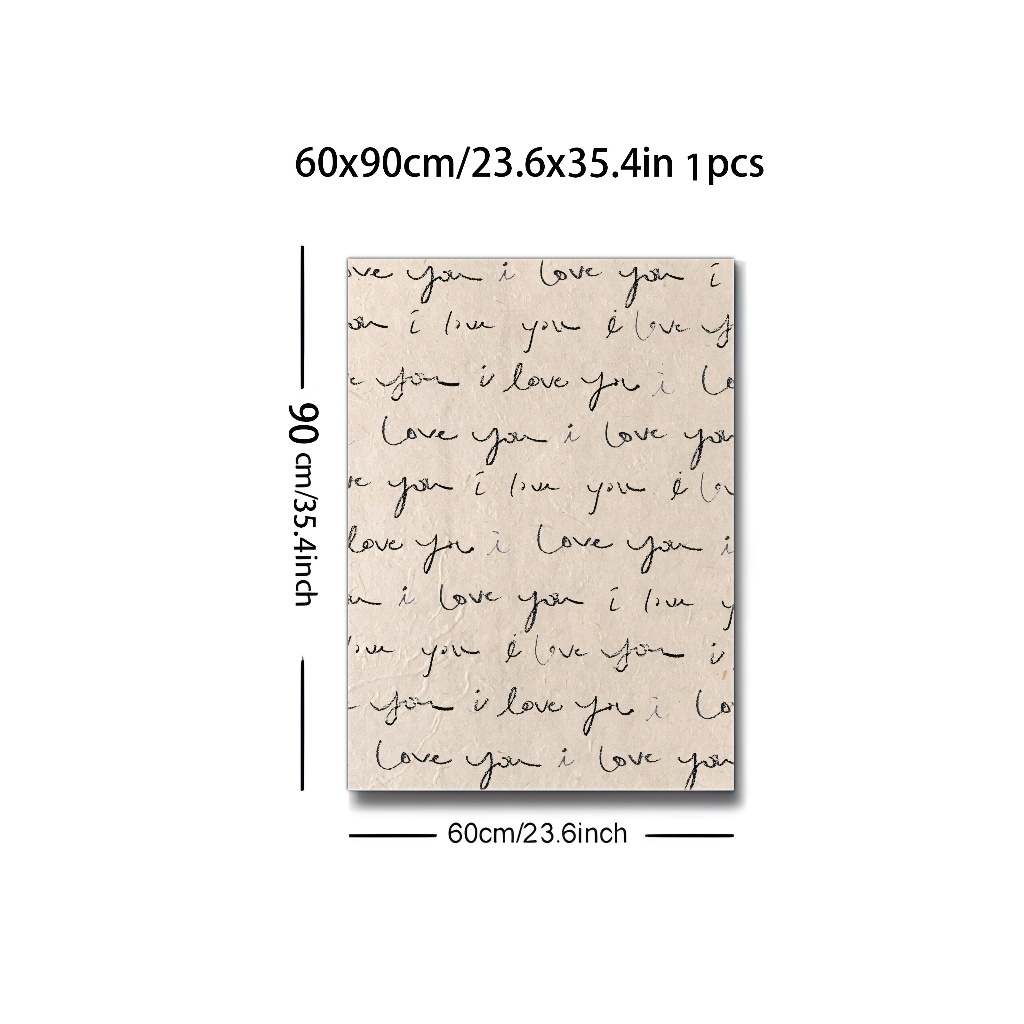 60x90cm/23.6x35.4in 1pcs
ove you i love you i
ou i love you i love y
e you i love you i lo
love you i love you
ve you i love you i lov
love you i love you i
ou i love you i love y
love you i love you i
you i love you i lo
love you i love you
90 cm/35.4inch
60cm/23.6inch